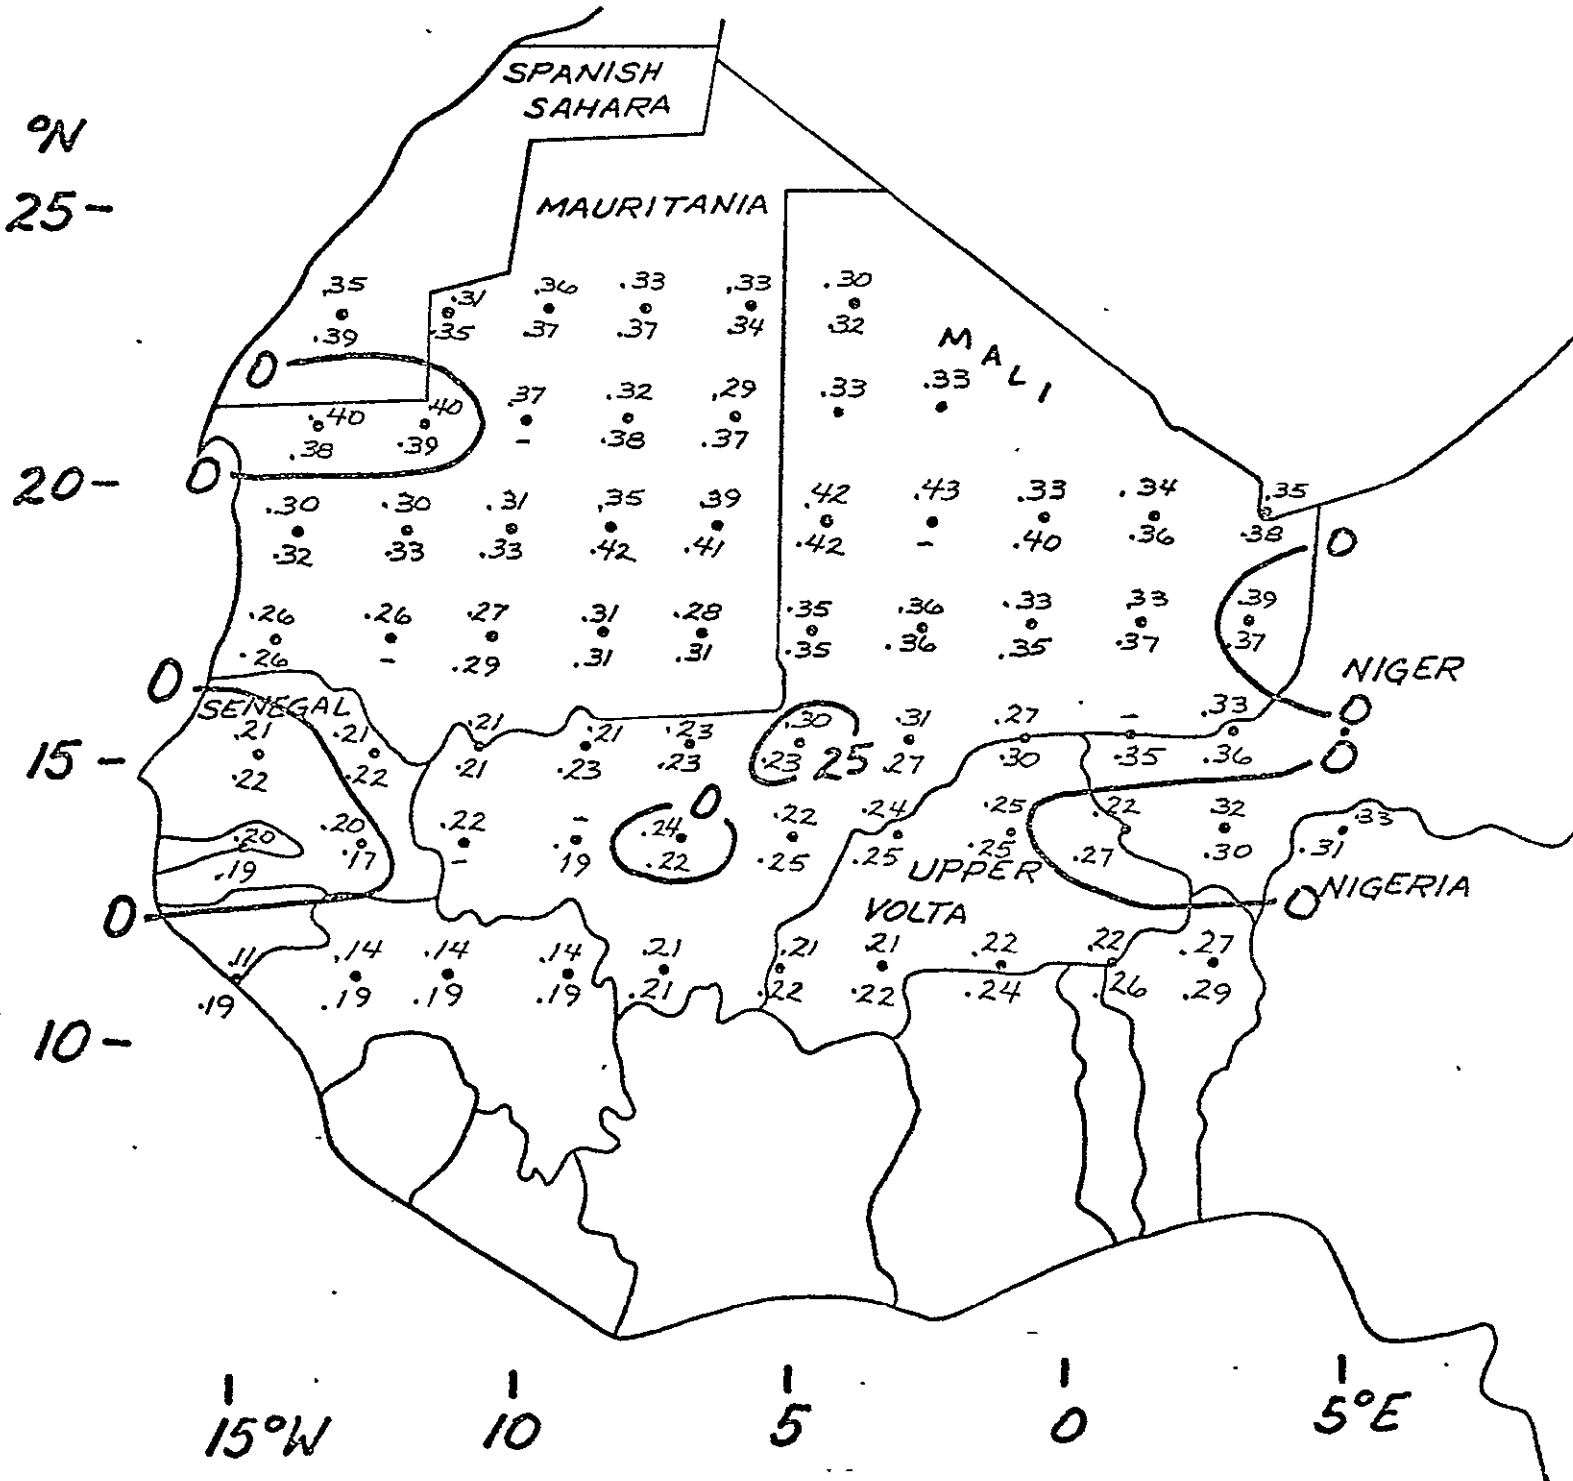 SPANISH
SAHARA
°N
25-
MAURITANIA
.35 .31 .36 .33 .33 .30
.39 .35 .37 .37 .34 .32
MALI
0
.40 .40 .37 .32 .29 .33 .33
.38 .39 - .38 .37
20- 0
.30 .30 .31 .35 .39 .42 .43 .33 .34 .35
.32 .33 .33 .42 .41 .42 - .40 .36 .38
0
.26 .26 .27 .31 .28 .35 .36 .33 .33 .39
.26 - .29 .31 .31 .35 .36 .35 .37 .37
0 NIGER
SENEGAL
.21 .21 .21 .21 .23 .30 .31 .27 - .33 0
15- .22 .22 .21 .23 .23 .23 25 .27 .30 .35 .36 0
0
.20 .20 .22 - .24 .22 .24 .25 .22 .32 .33
.19 .17 - .19 .22 .25 .25 .25 .27 .30 .31
UPPER
VOLTA
NIGERIA
0 0
.11 .14 .14 .14 .21 .21 .21 .22 .22 .27
.19 .19 .19 .19 .21 .22 .22 .24 .26 .29
10-
15°W 10 5 0 5°E